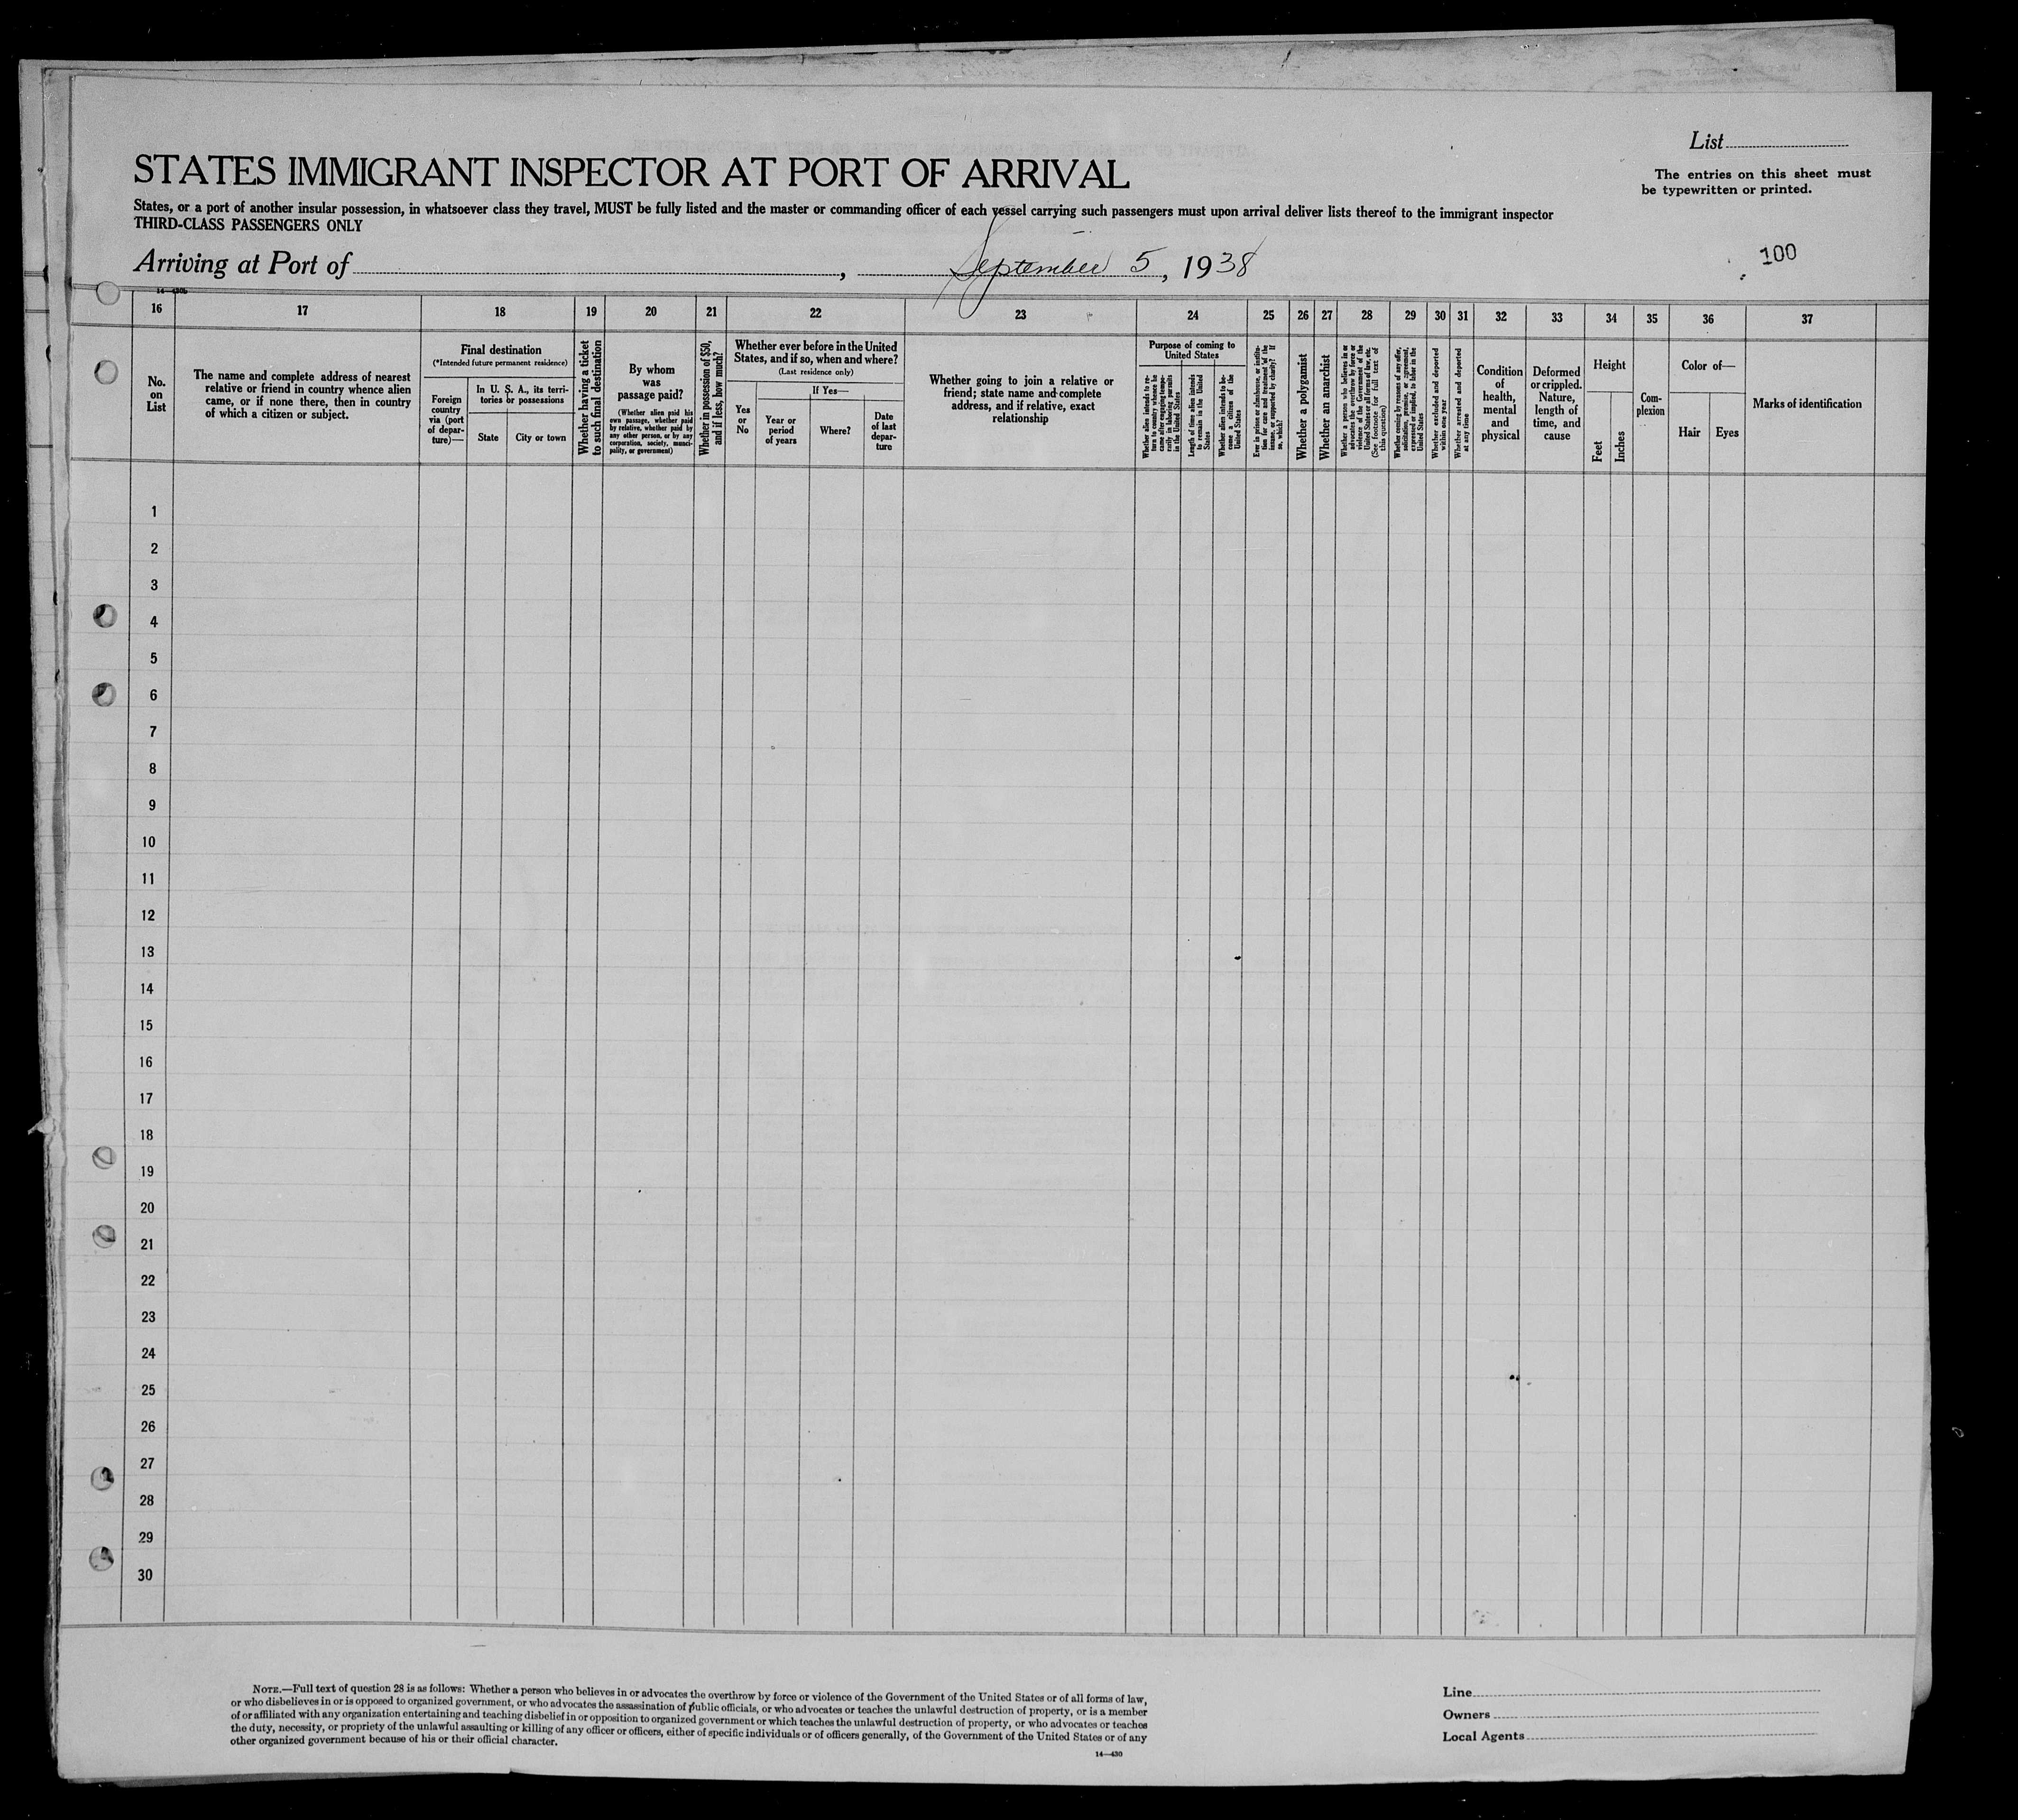 List
STATES IMMIGRANT INSPECTOR AT PORT OF ARRIVAL
The entries on this sheet must
be typewritten or printed.
States, or a port of another insular possession, in whatsoever class they travel, MUST be fully listed and the master or commanding officer of each vessel carrying such passengers must upon arrival deliver lists thereof to the immigrant inspector
THIRD-CLASS PASSENGERS ONLY
Arriving at Port of , September 5, 1938
100
16 17 18 19 20 21 22 23 24 25 26 27 28 29 30 31 32 33 34 35 36 37
No.
on
List
The name and complete address of nearest
relative or friend in country whence alien
came, or if none there, then in country
of which a citizen or subject.
Final destination
(*Intended future permanent residence)
Foreign
country
via (port
of depar-
ture)—
In U. S. A., its terri-
tories or possessions
State
City or town
Whether having a ticket
to such final destination
By whom
was
passage paid?
(Whether alien paid his
own passage, whether paid
by relative, whether paid by
any other person, or by any
corporation, society, munici-
pality, or government)
Whether in possession of $50,
and if less, how much?
Whether ever before in the United
States, and if so, when and where?
(Last residence only)
Yes
or
No
If Yes—
Year or
period
of years
Where?
Date
of last
depar-
ture
Whether going to join a relative or
friend; state name and complete
address, and if relative, exact
relationship
Purpose of coming to
United States
Whether alien intends to re-
turn to country whence he
came after engaging tempo-
rarily in laboring pursuits
in the United States
Length of time alien intends
to remain in the United
States
Whether alien intends to be-
come a citizen of the
United States
Ever in prison or almshouse, or institu-
tion for care and treatment of the
insane, or supported by charity? If
so, which?
Whether a polygamist
Whether an anarchist
Whether a person who believes in or
advocates the overthrow by force or
violence of the Government of the
United States or all forms of law, etc.
(See footnote for full text of
this question)
Whether coming by reasons of any offer,
solicitation, promise, or agreement,
expressed or implied, to labor in the
United States
Whether excluded and deported
within one year
Whether arrested and deported
at any time
Condition
of
health,
mental
and
physical
Deformed
or crippled.
Nature,
length of
time, and
cause
Height
Feet
Inches
Com-
plexion
Color of—
Hair
Eyes
Marks of identification
1
2
3
4
5
6
7
8
9
10
11
12
13
14
15
16
17
18
19
20
21
22
23
24
25
26
27
28
29
30
NOTE.—Full text of question 28 is as follows: Whether a person who believes in or advocates the overthrow by force or violence of the Government of the United States or of all forms of law,
or who disbelieves in or is opposed to organized government, or who advocates the assassination of public officials, or who advocates or teaches the unlawful destruction of property, or is a member
of or affiliated with any organization entertaining and teaching disbelief in or opposition to organized government or which teaches the unlawful destruction of property, or who advocates or teaches
the duty, necessity, or propriety of the unlawful assaulting or killing of any officer or officers, either of specific individuals or of officers generally, of the Government of the United States or of any
other organized government because of his or their official character.
14—430
Line
Owners
Local Agents